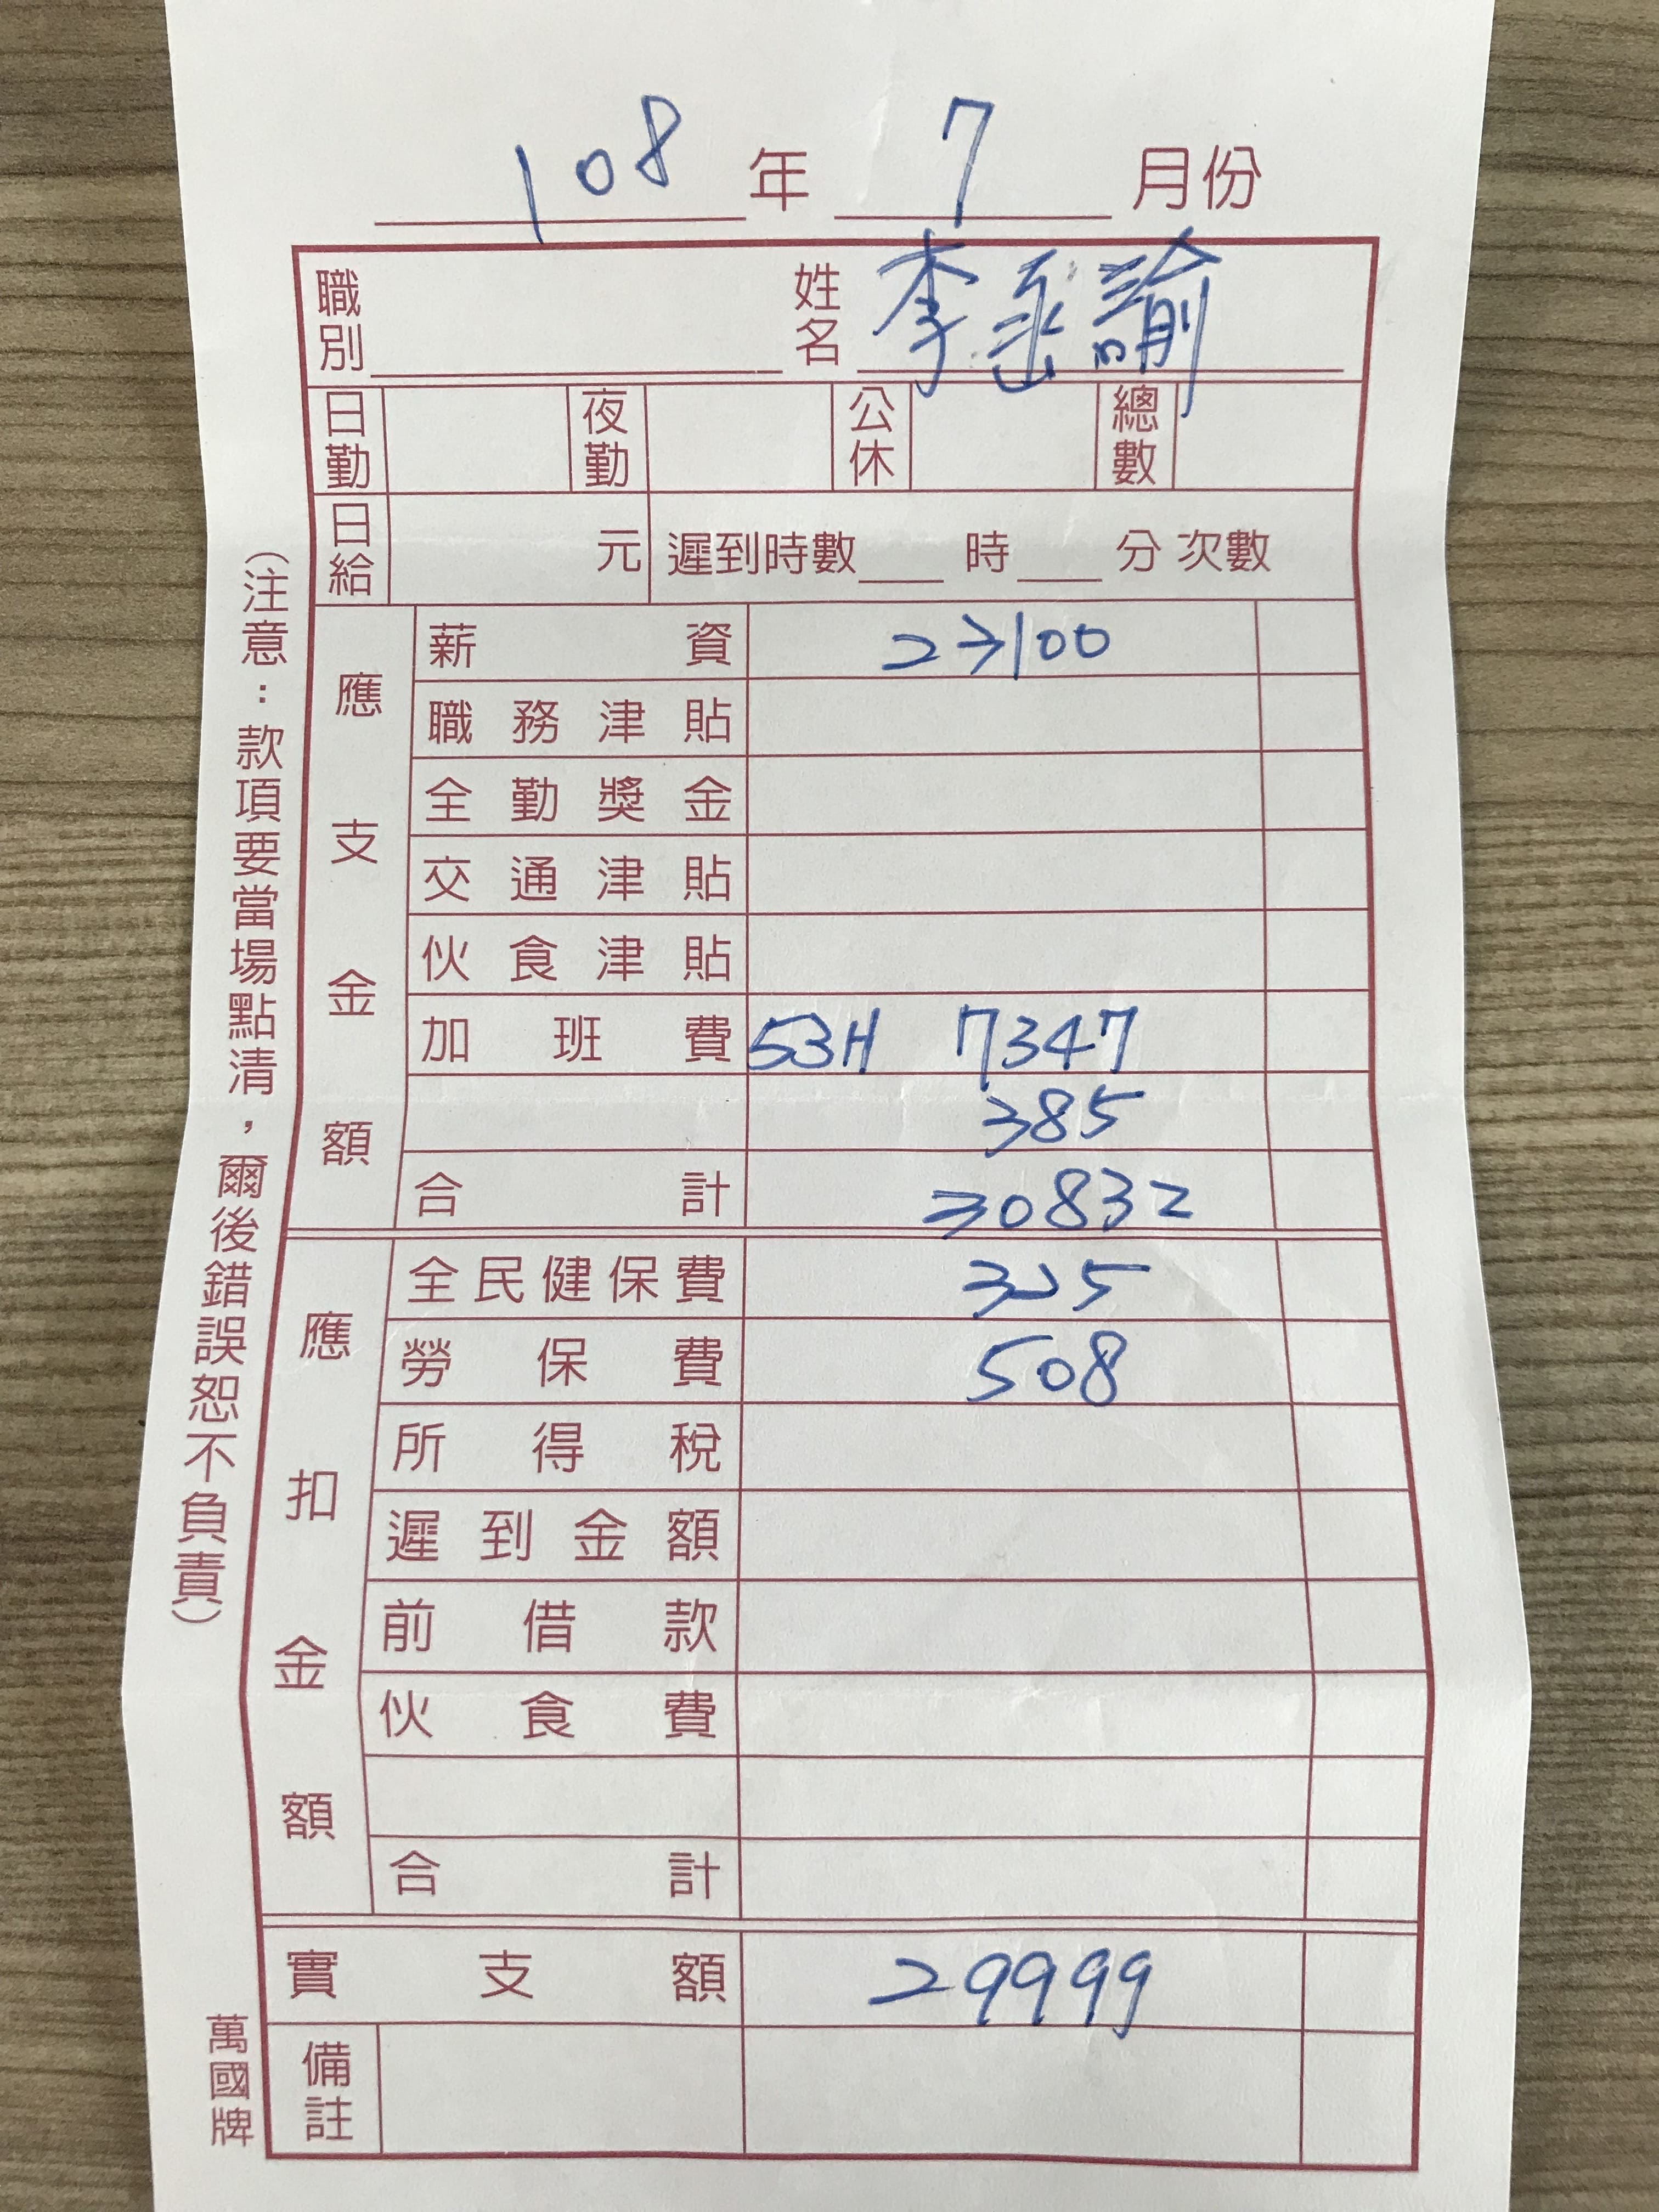 108 年 7 月份
職別 姓名 李丞諭
日勤 夜勤 公休 總數
日給 元 遲到時數 時 分 次數
應支金額
薪資 23100
職務津貼
全勤獎金
交通津貼
伙食津貼
加班費 53H 7347
385
合計 30832
應扣金額
全民健保費 325
勞保費 508
所得稅
遲到金額
前借款
伙食費
合計
實支額 29999
備註
(注意：款項要當場點清，爾後錯誤恕不負責)
萬國牌